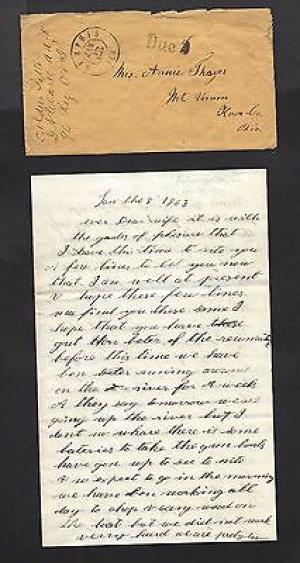 Due 6
Mrs. Annie Thayer
Mt Vernon
Knox Co.
Ohio.
Jan the 8 1863
ever Dear wife it is with
the grates of pleasure that
I have this time to rite you
A few lines to let you now
that I am well at present
& hope these few lines
ma find you the same I
hope that you have
got bter of the reumaties
before this time we have
bon runing around
on the river for A week
A they say tomorrow we are
going up the river but I
dont no whare there is some
bateries to take the gun boats
have gon up to see to nite
& we expect to go in the morning
we have bon working all
day to chop & cary wood on
the boat but we did not work
verry hard